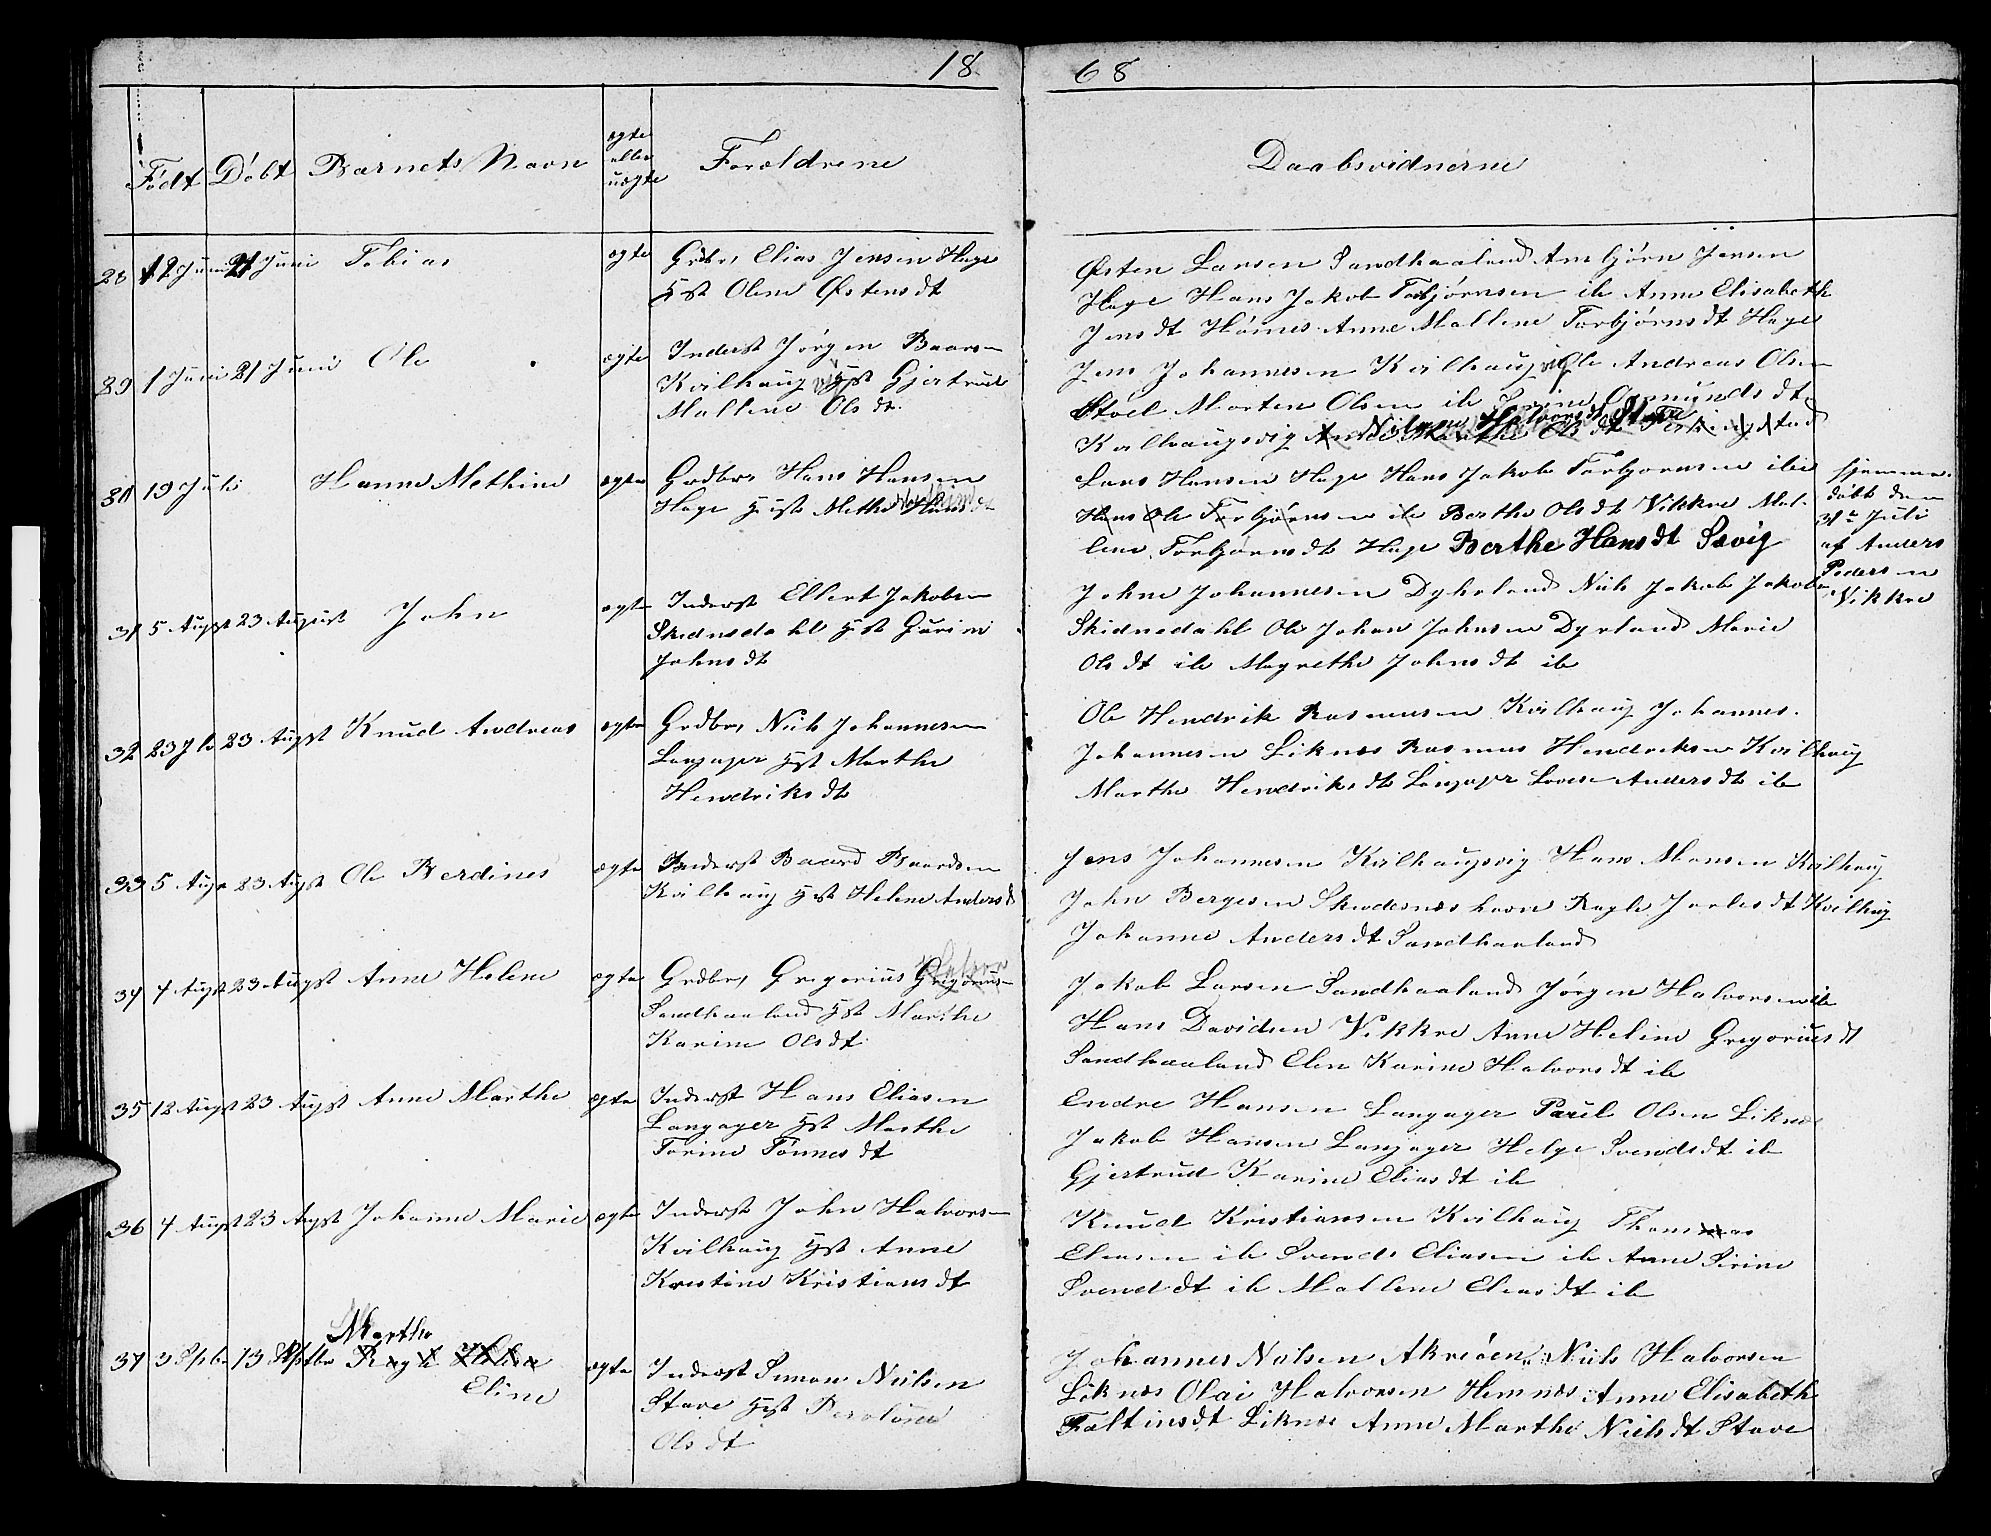 18 68
Født Døbt Barnets Navn ægte eller uægte Forældrene Daabsvidnerne
28 12 Juni 21 Juni Tobias ægte Grdbr, Elias Jensen Hage
Hst Oline Østensdt
Østen Larsen Sandhaaland Arnbjørn Jensen
Hage Hans Jakob Torbjørnsen ib Anne Elisabeth
Jensdt Hemnes Anne Mallene Torbjørnsdt Hage
29 1 Juni 21 Juni Ole ægte Inderst Jørgen Baarsen
Kvilhaugvig Hst Gjertrud
Mallene Olsdt.
Jens Johannesen Kvilhaugvig Ole Andreas Olsen
Stoel Morten Olsen ib Serine Osmundsdt
Kvilhaugsvig Anne Marthe Olsdt
30 19 Juli Hanne Methine ægte Grdbr, Hans Hansen
Hage Hst Methe Hansdt
Lars Hansen Hage Hans Jakob Torbjørnsen ib
Hans Ole Torbjørnsen ib Berthe Olsdt Vikkre Mal-
lene Torbjørnsdt Hage Berthe Hansdt Sævig
hjemme-
døbt den
31te Juli
af Anders
Pedersen
Vikkre
31 5 Augst 23 August John ægte Inderst Ellert Jakobsen
Skidnedahl Hst Gurine
Johnsdt
Johne Johannesen Dyrland Nils Jakob Jakobsen
Skidnedahl Ole Johan Johnsen Dyrland Marie
Olsdt ib Magrethe Johnsdt ib
32 23 Jl 23 Augst Knud Andreas ægte Grdbr, Nils Johannesen
Langager Hst Marthe
Hendriksdt
Ole Hendrik Rasmusen Kvilhaug Johannes
Johannesen Liknes Rasmus Hendriksen Kvilhaug
Marthe Hendriksdt Langager Lovise Andersdt ib
33 5 Augs 23 Augst Ole Berdines ægte Inderst Baard Baardsen
Kvilhaug Hst Helene Andersdt
Jens Johannesen Kvilhaugsvig Hans Monsen Kvilhaug
John Bergesen Skudesneshavn Ragle Jarlesdt Kvilhaug
Johanne Andersdt Sandhaaland
34 4 Augst 23 Augst Anne Helene ægte Grdbr, Gregorius Gregoriusen
Sandhaaland Hst Marthe
Karine Olsdt
Jakob Larsen Sandhaaland Jørgen Halvorsen ib
Hans Davidsen Vikkre Anne Heline Gregoriusdt
Sandhaaland Elen Karine Halvorsdt ib
35 12 Augst 23 Augst Anne Marthe ægte Inderst Hans Eliasen
Langager Hst Marthe
Torine Tønnesdt
Endre Hansen Langager Paul Olsen Liknes
Jakob Hansen Langager Helge Svendsdt ib
Gjertrud Karine Eliasdt ib
36 4 Augst 23 Augst Johanne Marie ægte Inderst John Halvorsen
Kvilhaug Hst Anne
Kristine Kristiansdt
Knud Kristiansen Kvilhaug Thomas
Eliasen ib Svend Eliasen ib Anne Sirine
Svendsdt ib Mallene Eliasdt ib
37 3 Spbr 13 Sptbr Marthe Ragle Heline
Eline ægte Inderst Simon Nielsen
Stave Hst Berline
Olsdt
Johannes Nielsen Akreøen Niels Halvorsen
Liknes Olai Halvorsen Hemnes Anne Elisabeth
Faltinsdt Liknes Anne Marthe Nielsdt Stave